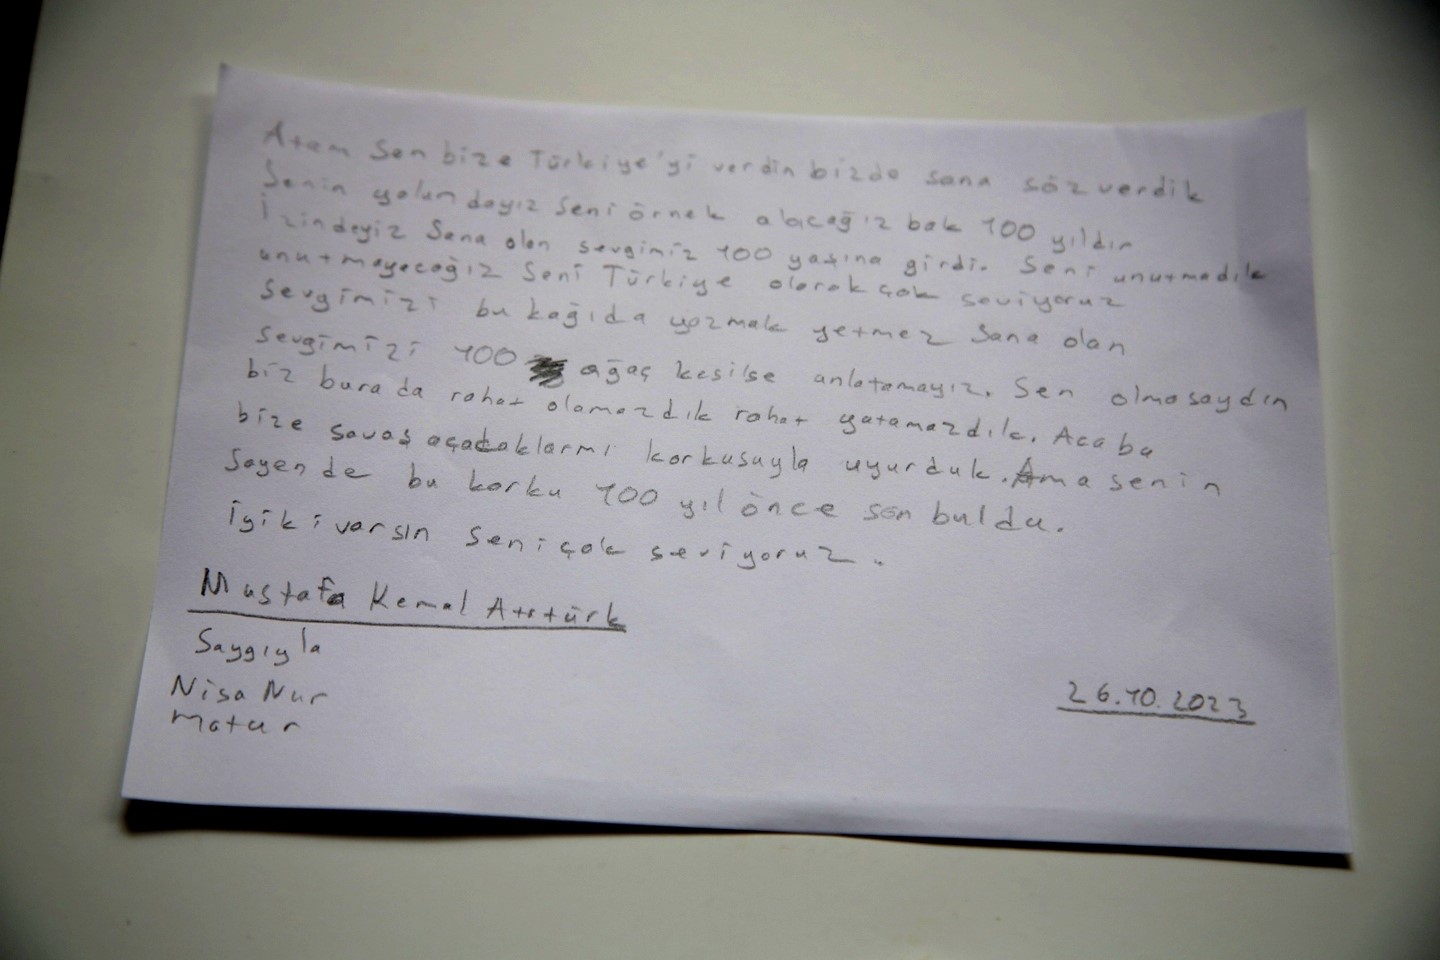 Atam Sen bize Türkiye'yi verdin bizde sana söz verdik
Senin yolundayız Seni örnek alacağız bak 100 yıldır
İzindeyiz Sana olan sevgimiz 100 yaşına girdi. Seni unutmadık
unutmayacağız Seni Türkiye olarak çok seviyoruz
Sevgimizi bu kağıda yazmak yetmez Sana olan
Sevgimizi 100 ağaç kesilse anlatamayız. Sen olmasaydın
biz bura da rahat olamazdık rahat yatamazdık. Acaba
bize savaş açacaklarmı korkusuyla uyurduk. Ama senin
Sayen de bu korku 100 yıl önce son buldu.
İyiki varsın Seni çok seviyoruz.
Mustafa Kemal Atatürk
Saygıyla
Nisa Nur
Matur
26.10.2023